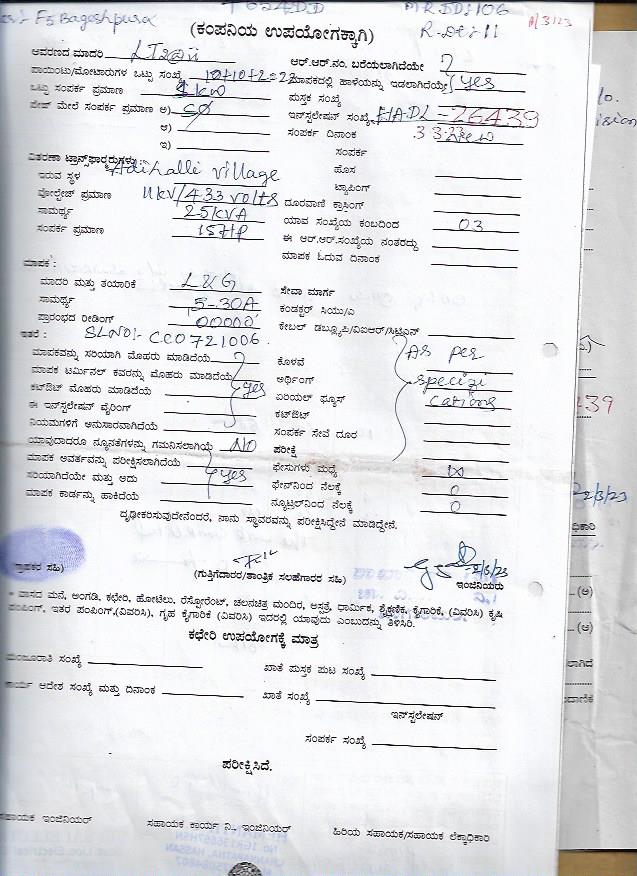 F5 Bagoshpura
MRID:106
(ಕಂಪನಿಯ ಉಪಯೋಗಕ್ಕಾಗಿ)
R.Dt:11
ಆವರಣದ ಮಾದರಿ LT2aii
ಆರ್.ಆರ್.ನಂ. ಬರೆಯಲಾಗಿದೆಯೇ
ಪಾಯಿಂಟು/ಮೋಟಾರುಗಳ ಒಟ್ಟು ಸಂಖ್ಯೆ 10+10+2=22
ಮಾಪಕದಲ್ಲಿ ಹಾಳೆಯನ್ನು ಇಡಲಾಗಿದೆಯೇ yes
ಒಟ್ಟು ಸಂಪರ್ಕ ಪ್ರಮಾಣ 1kW
ಪುಸ್ತಕ ಸಂಖ್ಯೆ
ಪೇಜ್ ಮೇಲೆ ಸಂಪರ್ಕ ಪ್ರಮಾಣ ಅ)
ಇನ್‌ಸ್ಟಲೇಷನ್ ಸಂಖ್ಯೆ HADL-26439
ಆ)
ಸಂಪರ್ಕ ದಿನಾಂಕ 3.3.23
ಇ)
ಸಂಪರ್ಕ
ವಿತರಣಾ ಟ್ರಾನ್ಸ್‌ಫಾರ್ಮರುಗಳು:
ಹೊಸ
ಇರುವ ಸ್ಥಳ Adihalli village
ಟ್ಯಾಪಿಂಗ್
ವೋಲ್ಟೇಜ್ ಪ್ರಮಾಣ 11kV/433 volts
ದೂರವಾಣಿ ಕ್ರಾಸಿಂಗ್
ಸಾಮರ್ಥ್ಯ 25kVA
ಯಾವ ಸಂಖ್ಯೆಯ ಕಂಬದಿಂದ 03
ಸಂಪರ್ಕ ಪ್ರಮಾಣ 15HP
ಈ ಆರ್.ಆರ್.ಸಂಖ್ಯೆಯ ನಂತರದ್ದು
ಮಾಪಕ ಓದುವ ದಿನಾಂಕ
ಮಾಪಕ :
ಮಾದರಿ ಮತ್ತು ತಯಾರಿಕೆ L&G
ಸೇವಾ ಮಾರ್ಗ
ಸಾಮರ್ಥ್ಯ 5-30A
ಕಂಡಕ್ಟರ್ ಸಿಯು/ಎ
ಪ್ರಾರಂಭದ ರೀಡಿಂಗ್ 00000
ಕೇಬಲ್ ಡಬ್ಲ್ಯೂಪಿ/ವಿಐಆರ್/ಸಿಟಿಎಸ್
ಇತರೆ : SLNO:- CC0721006.
ಮಾಪಕವನ್ನು ಸರಿಯಾಗಿ ಮೊಹರು ಮಾಡಿದೆಯೆ
ಕೊಳವೆ As per
ಮಾಪಕ ಟರ್ಮಿನಲ್ ಕವರನ್ನು ಮೊಹರು ಮಾಡಿದೆಯೆ
ಅರ್ಥಿಂಗ್ specifi
ಕಟ್‌ಔಟ್ ಮೊಹರು ಮಾಡಿದೆಯೆ yes
ಏರಿಯಲ್ ಫ್ಯೂಸ್ cations
ಈ ಇನ್‌ಸ್ಟಲೇಷನ್ ವೈರಿಂಗ್
ಕಟ್‌ಔಟ್
ನಿಯಮಗಳಿಗೆ ಅನುಸಾರವಾಗಿದೆಯೆ
ಸಂಪರ್ಕ ಸೇವೆ ದೂರ
ಯಾವುದಾದರೂ ನ್ಯೂನತೆಗಳನ್ನು ಗಮನಿಸಲಾಗಿಯೆ NO
ಪರೀಕ್ಷೆ
ಮಾಪಕ ಅವರ್ತವನ್ನು ಪರೀಕ್ಷಿಸಲಾಗಿದೆಯೆ
ಫೇಸುಗಳು ಮಧ್ಯೆ
ಸರಿಯಾಗಿದೆಯೇ ಮತ್ತು ಅದು yes
ಫೇಸ್‌ನಿಂದ ನೆಲಕ್ಕೆ 0
ಮಾಪಕ ಕಾರ್ಡನ್ನು ಹಾಕಿದೆಯೆ
ನ್ಯೂಟ್ರಲ್‌ನಿಂದ ನೆಲಕ್ಕೆ 0
ದೃಢೀಕರಿಸುವುದೇನೆಂದರೆ, ನಾನು ಸ್ಥಾವರವನ್ನು ಪರೀಕ್ಷಿಸಿದ್ದೇನೆ ಮಾಡಿದ್ದೇನೆ.
2/3/23
(ಗ್ರಾಹಕರ ಸಹಿ)
(ಗುತ್ತಿಗೆದಾರರ/ತಾಂತ್ರಿಕ ಸಲಹೆಗಾರರ ಸಹಿ)
ಇಂಜಿನಿಯರು
* ವಾಸದ ಮನೆ, ಅಂಗಡಿ, ಕಛೇರಿ, ಹೋಟೆಲು, ರೆಸ್ಟೋರೆಂಟ್, ಚಲನಚಿತ್ರ ಮಂದಿರ, ಆಸ್ಪತ್ರೆ, ಧಾರ್ಮಿಕ, ಶೈಕ್ಷಣಿಕ, ಕೈಗಾರಿಕೆ, (ವಿವರಿಸಿ) ಕೃಷಿ
ಪಂಪಿಂಗ್, ಇತರ ಪಂಪಿಂಗ್,(ವಿವರಿಸಿ), ಗೃಹ ಕೈಗಾರಿಕೆ (ವಿವರಿಸಿ) ಇದರಲ್ಲಿ ಯಾವುದು ಎಂಬುದನ್ನು ತಿಳಿಸಿರಿ.
ಕಛೇರಿ ಉಪಯೋಗಕ್ಕೆ ಮಾತ್ರ
ಮಂಜೂರಾತಿ ಸಂಖ್ಯೆ
ಖಾತೆ ಪುಸ್ತಕ ಪುಟ ಸಂಖ್ಯೆ
ಕಾರ್ಯ ಆದೇಶ ಸಂಖ್ಯೆ ಮತ್ತು ದಿನಾಂಕ
ಖಾತೆ ಸಂಖ್ಯೆ
ಇನ್‌ಸ್ಟಲೇಷನ್
ಸಂಪರ್ಕ ಸಂಖ್ಯೆ
ಪರೀಕ್ಷಿಸಿದೆ.
ಸಹಾಯಕ ಇಂಜಿನಿಯರ್
ಸಹಾಯಕ ಕಾರ್ಯ ನಿ., ಇಂಜಿನಿಯರ್
ಹಿರಿಯ ಸಹಾಯಕ/ಸಹಾಯಕ ಲೆಕ್ಕಾಧಿಕಾರಿ